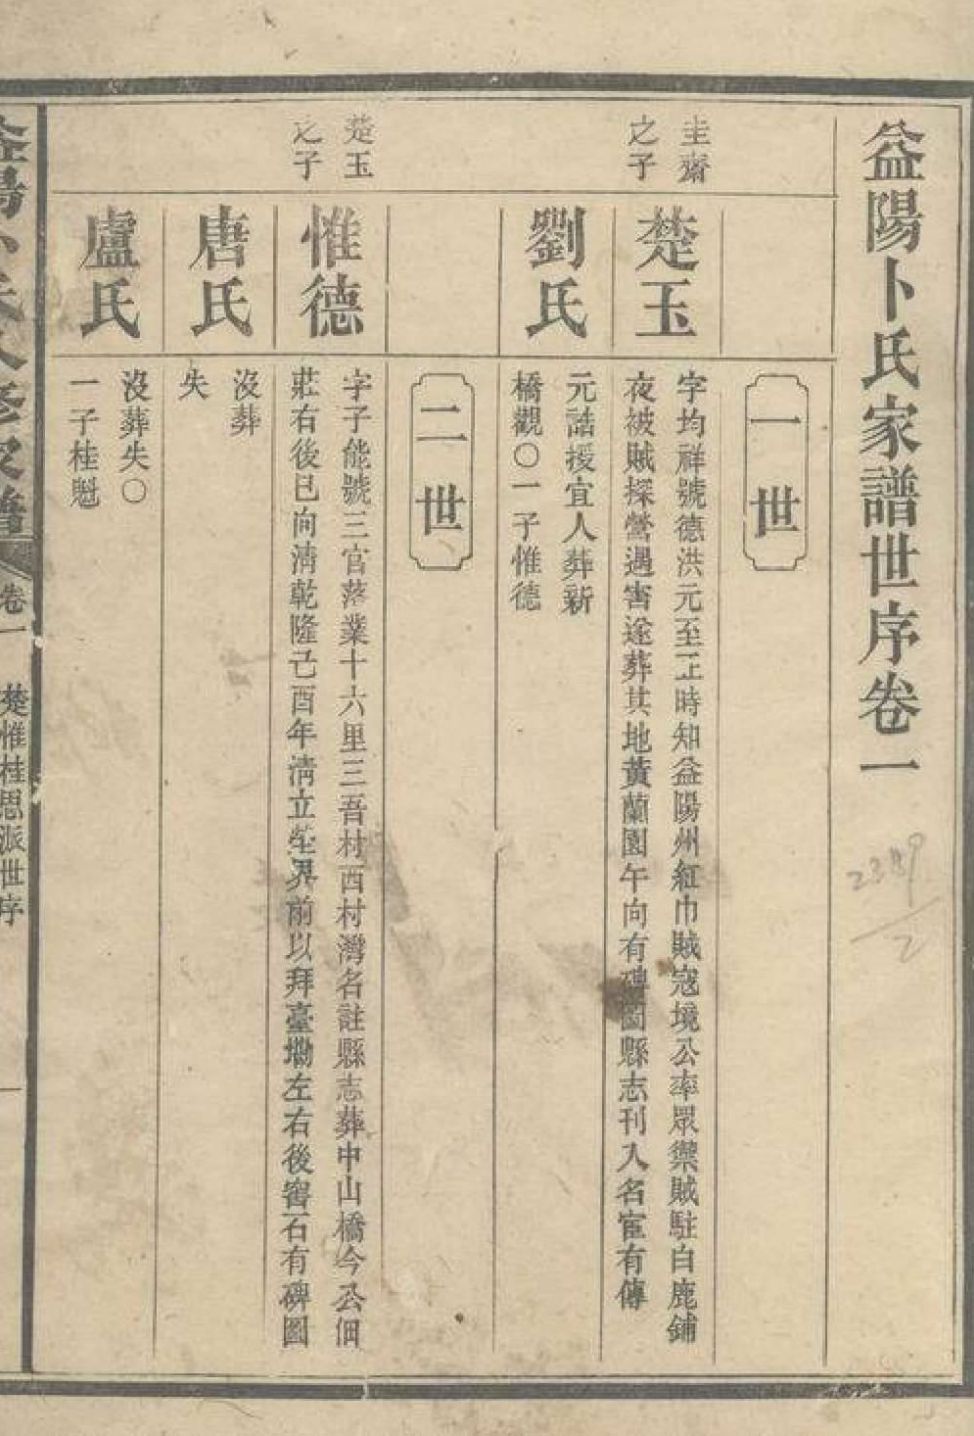 益陽卜氏家譜世序卷一
一世
圭齋
之子
楚玉
字均祥號德洪元至正時知益陽州紅巾賊寇境公率眾禦賊駐白鹿鋪
夜被賊探營遇害遂葬其地黃蘭園午向有碑圖縣志刊入名宦有傳
劉氏
元誥援宜人葬新
橋觀〇一子惟德
二世
楚玉
之子
惟德
字子能號三官落業十六里三吾村西村灣名註縣志葬中山橋今公佃
莊右後巳向清乾隆己酉年清立塋界前以拜臺墈左右後窖石有碑圖
唐氏
沒葬
失
盧氏
沒葬失〇
一子桂魁
益陽卜氏八修家譜
卷一
楚惟桂思派世序
一